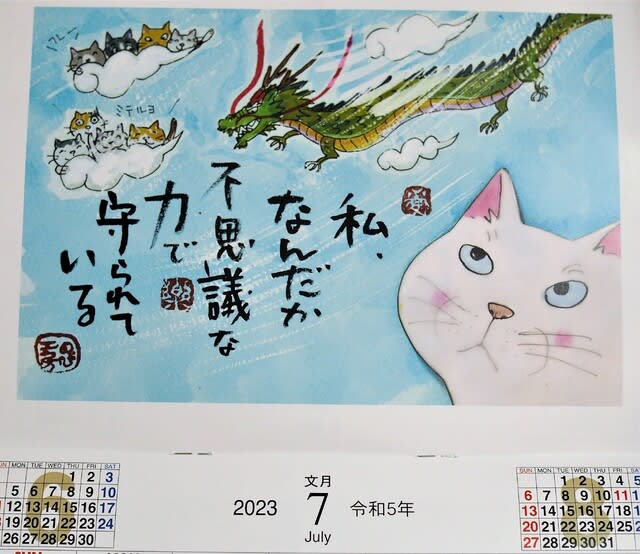 フレー
ミテルヨ
私、
なんだか
不思議な
力で
守られて
いる
愛
楽
6
MON TUE WED THU FRI SAT
1 2 3
5 6 7 8 9 10
12 13 14 15 16 17
19 20 21 22 23 24
26 27 28 29 30
2023
文月
7
July
令和5年
8
SUN MON TUE WED THU FRI
1 2 3 4
6 7 8 9 10 11
13 14 15 16 17 18
20 21 22 23 24 25
27 28 29 30 31